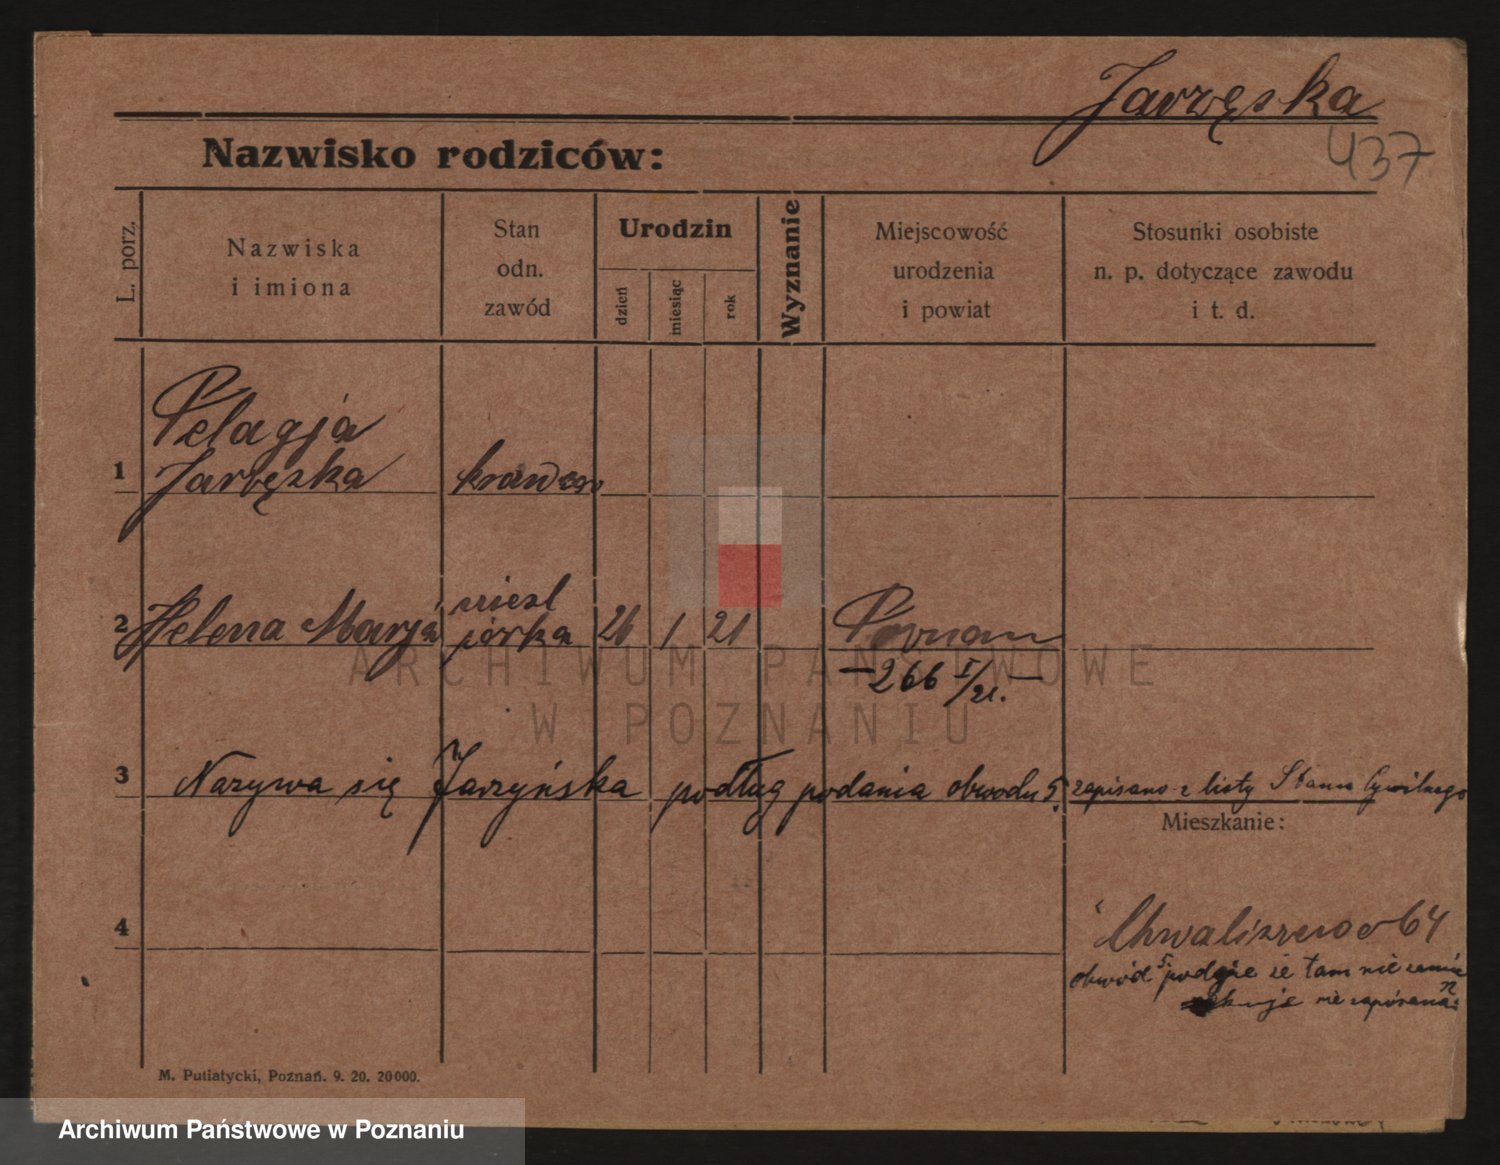 Jarzęska
437
Nazwisko rodziców:
L. porz.
Nazwiska
i imiona
Stan
odn.
zawód
Urodzin
dzień
miesiąc
rok
Wyznanie
Miejscowość
urodzenia
i powiat
Stosunki osobiste
n. p. dotyczące zawodu
i t. d.
1
Pelagja
Jarzęska
krawcow
2
Helena Marja
niezl
córka
26 1 21
Poznan
-266 I/21.-
3
Nazywa się Jarzyńska podług podania obwodu 5. zapisano z listy Stanu Cywilnego
Mieszkanie:
4
Chwaliszewo 64
obwód 5. podaje że tam nie zamie
nie zapisana
M. Putiatycki, Poznań. 9. 20. 20000.
ARCHIWUM PAŃSTWOWE
W POZNANIU
Archiwum Państwowe w Poznaniu